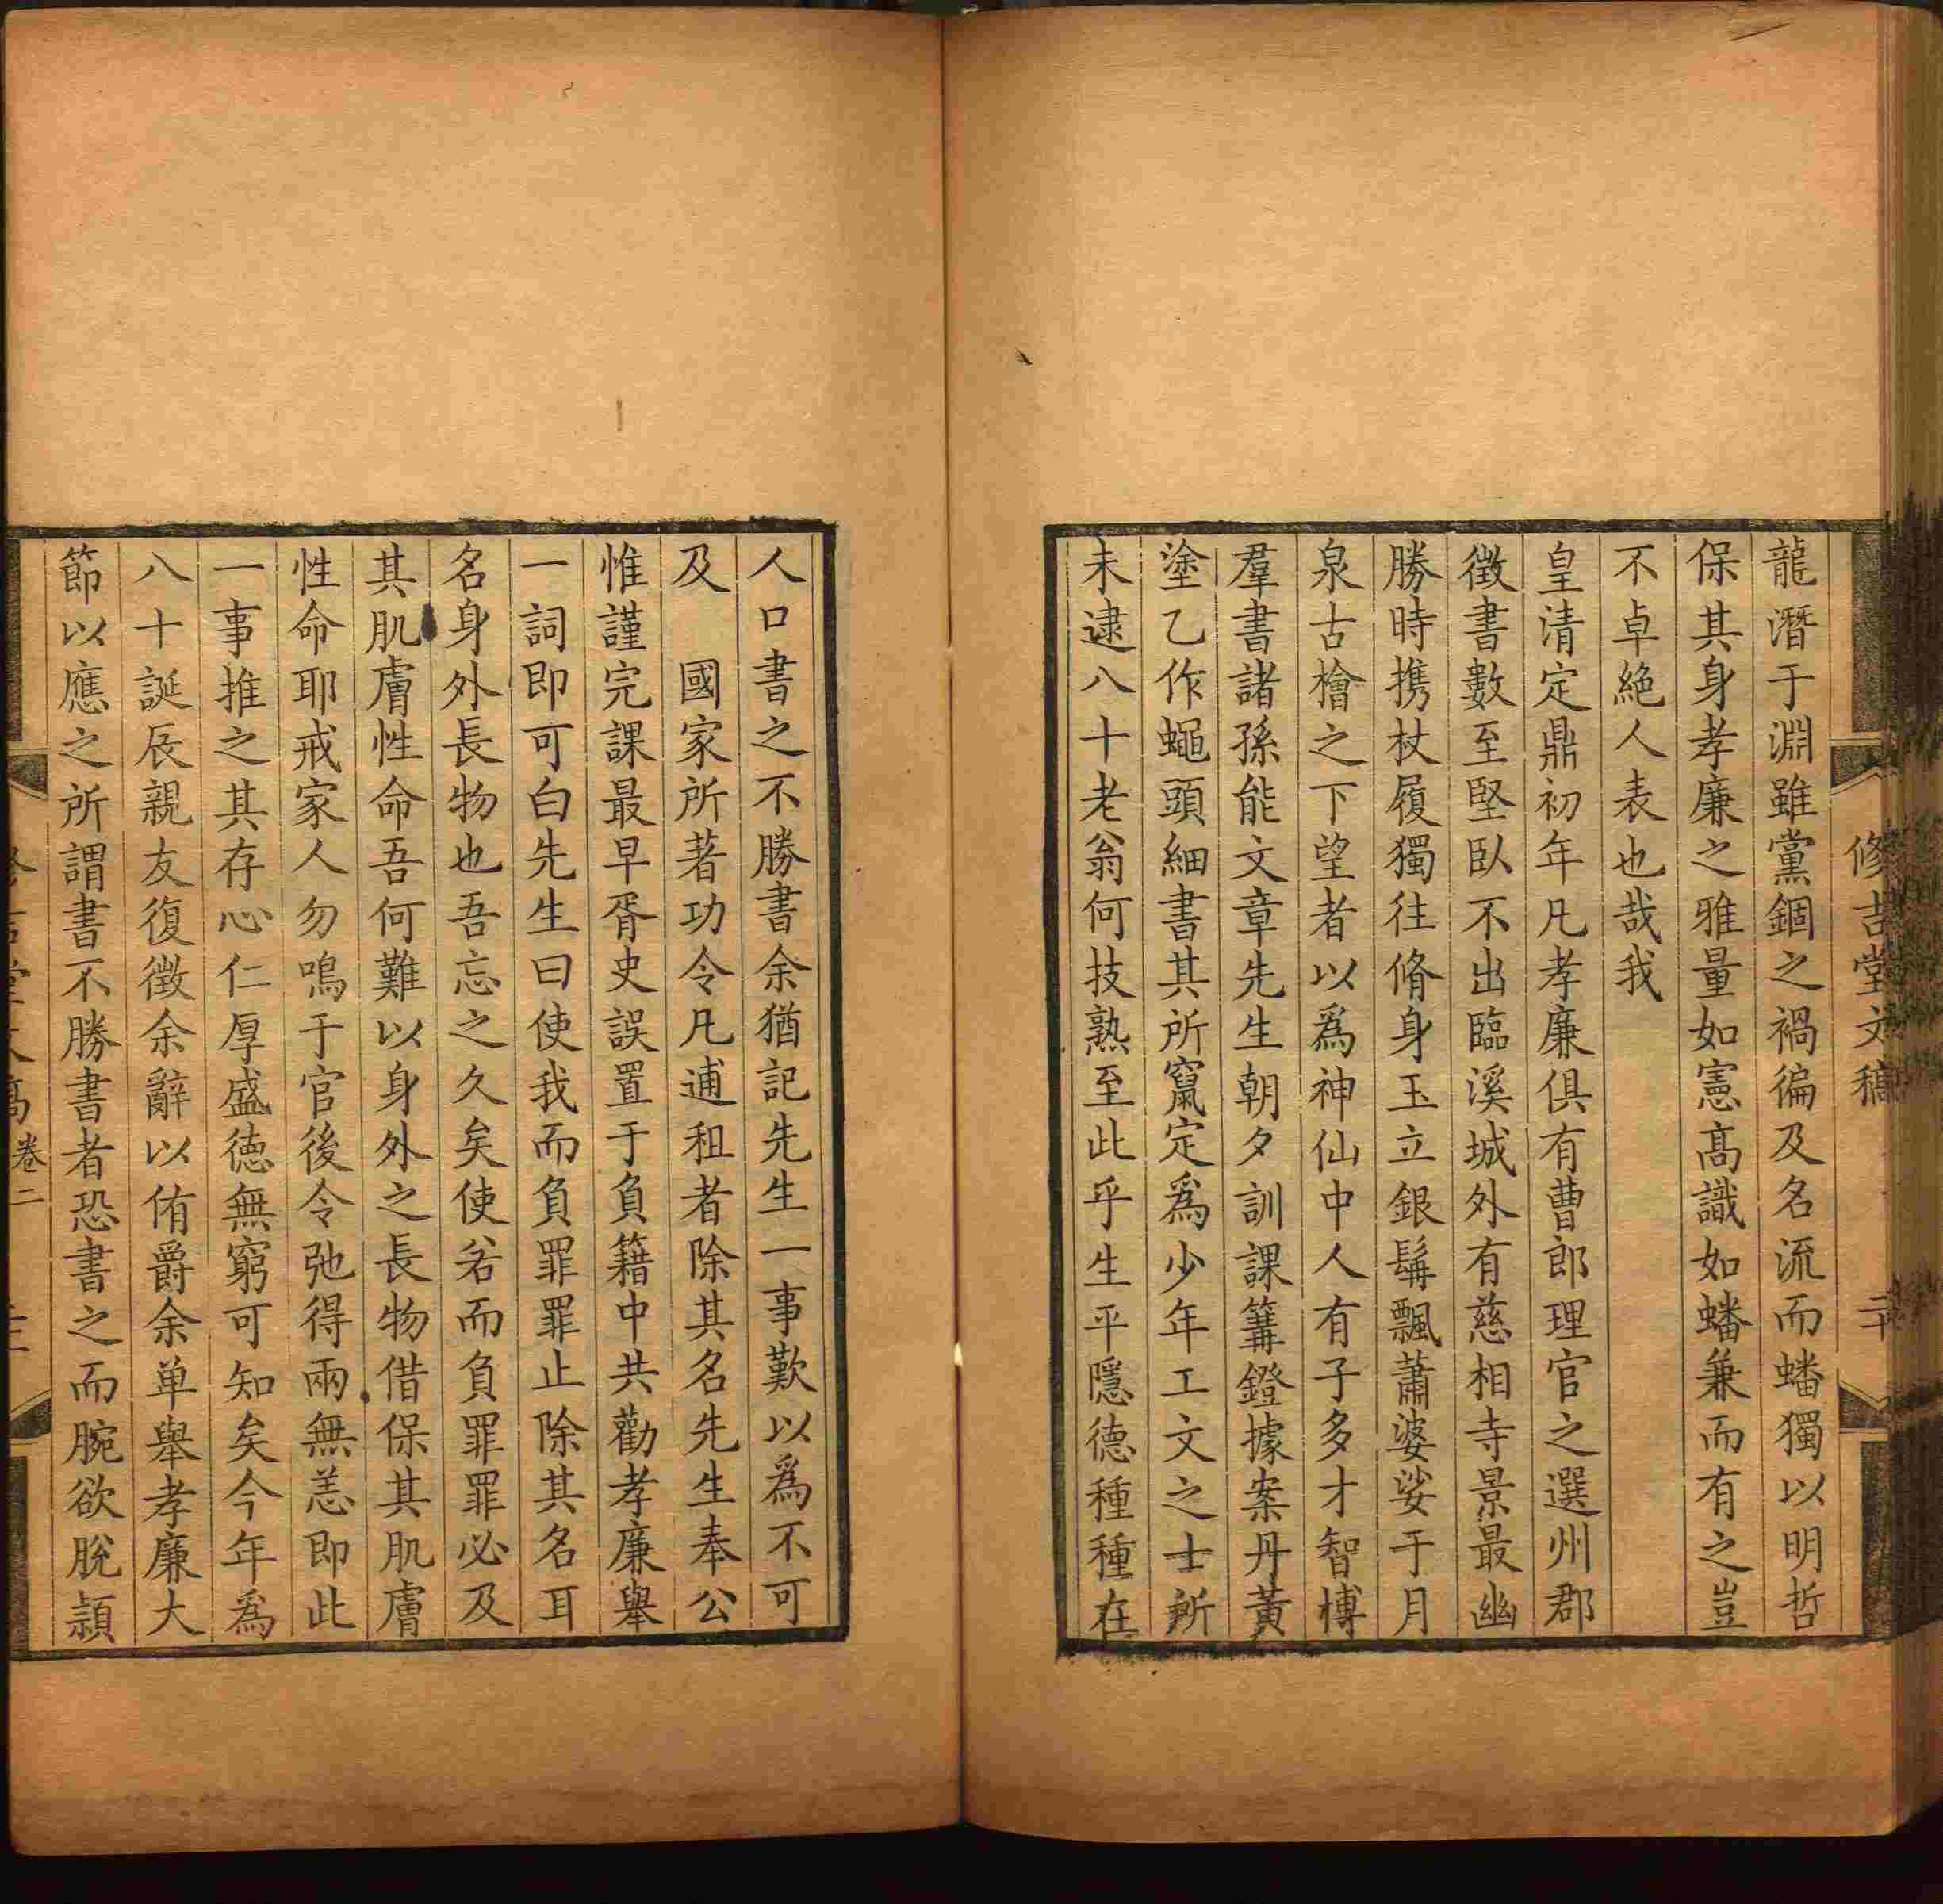 修吉堂文稿 二十
龍潛于淵雖黨錮之禍徧及名流而蟠獨以明哲
保其身孝廉之雅量如憲高識如蟠兼而有之豈
不卓絕人表也哉我
皇清定鼎初年凡孝廉俱有曹郎理官之選州郡
徵書數至堅臥不出臨溪城外有慈相寺景最幽
勝時携杖履獨往脩身玉立銀髯飄蕭婆娑于月
泉古檜之下望者以爲神仙中人有子多才智博
羣書諸孫能文章先生朝夕訓課篝鐙據案丹黃
塗乙作蠅頭細書其所竄定爲少年工文之士所
未逮八十老翁何技熟至此乎生平隱德種種在
人口書之不勝書余猶記先生一事歎以爲不可
及 國家所著功令凡逋租者除其名先生奉公
惟謹完課最早胥史誤置于負籍中共勸孝廉舉
一詞即可白先生曰使我而負罪罪止除其名耳
名身外長物也吾忘之久矣使若而負罪罪必及
其肌膚性命吾何難以身外之長物借保其肌膚
性命耶戒家人勿鳴于官後令弛得兩無恙即此
一事推之其存心仁厚盛德無窮可知矣今年爲
八十誕辰親友復徵余辭以侑爵余单舉孝廉大
節以應之所謂書不勝書者恐書之而腕欲脫穎
卷二